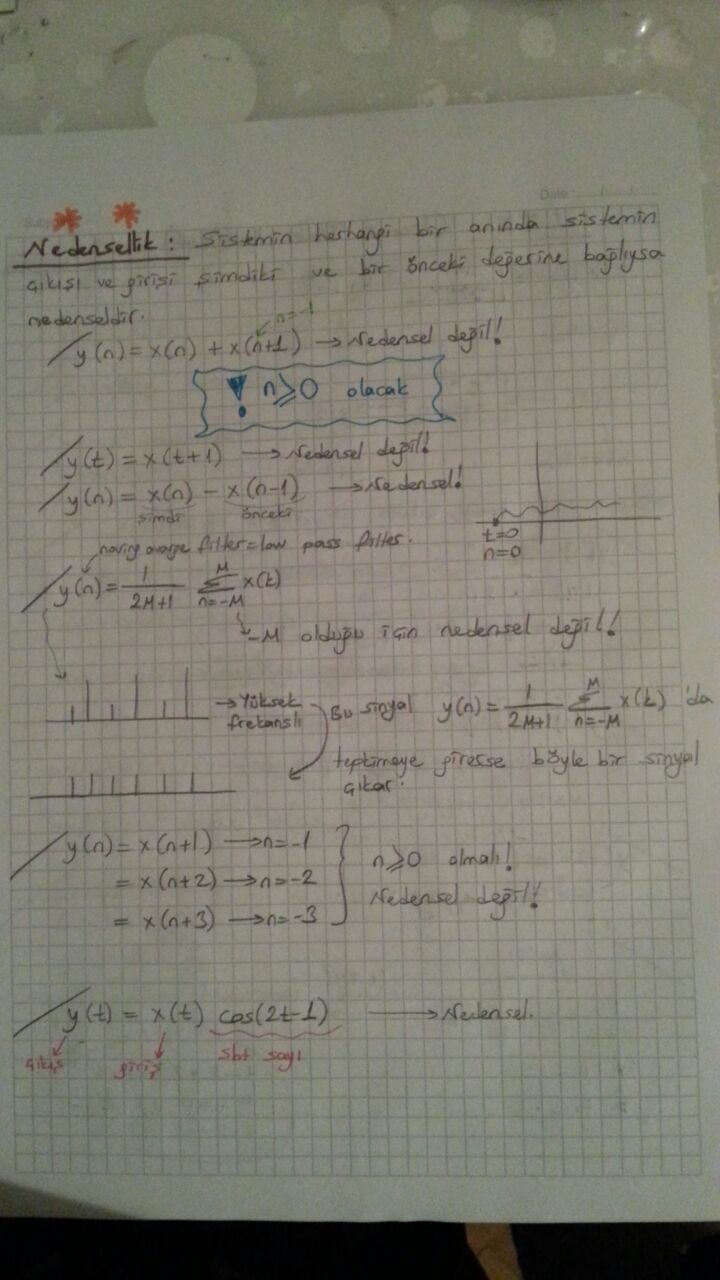 Date:
Nedensellik: Sistemin herhangi bir anında sistemin
çıkışı ve girişi şimdiki ve bir önceki değerine bağlıysa
nedenseldir.
n=-1
y(n) = x(n) + x(n+1) → Nedensel değil!
! n≥0 olacak
y(t) = x(t+1) → Nedensel değil!
y(n) = x(n) - x(n-1) → Nedensel!
şimdi önceki
t=0
n=0
filter = low pass filter.
y(n) = 1/(2M+1) Σ_{n=-M}^{M} x(k)
-M olduğu için nedensel değil!
→ Yüksek frekanslı
Bu sinyal y(n) = 1/(2M+1) Σ_{n=-M}^{M} x(k) 'da
tepkimeye girerse böyle bir sinyal
çıkar.
y(n) = x(n+1) → n=-1
= x(n+2) → n=-2
= x(n+3) → n=-3
n≥0 olmalı!
Nedensel değil!
y(t) = x(t) cos(2t-1) → Nedensel.
çıkış giriş sbt sayı